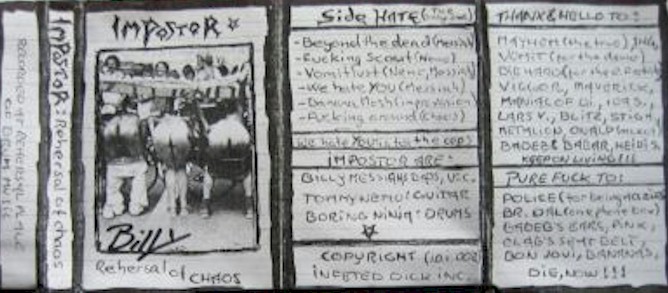 RECORDED AT REHERSAL PLACE
IMPOSTOR: Rehersal of chaos
IMPOSTOR
Billy
Rehersal of CHAOS
Side HATE (
-Beyond the dead (Messiah)
-Fucking Scout (Nemo)
-Vomitlust (Nemo, Messiah)
-We hate YOU (Messiah)
-Danova Mosh (improvisation)
-Fucking around (Chaos)
We hate YOU is for the cops
IMPOSTOR ARE:
BILLY MESSIAH: BASS, VOC.
TOMMY NEMO: GUITAR
BORING NINJA: DRUMS
COPYRIGHT
INFETED DICK INC.
THANX & HELLO TO:
MAYHEM (the true),
VOMIT (for the demo)
VIGGOR, MAVERICK,
MANIAC OF
LARS V., BLITZ, STIGH,
METALION,
BADEB & BABAR, HEIDI S.
KEEP ON LIVING!!!
PURE FUCK TO:
POLICE (for being
BR. DAL (one phone
BADEB'S EARS, PINK,
OLAB'S SEAT BELT,
BON JOVI, BANANAS,
DIE, NOW!!!